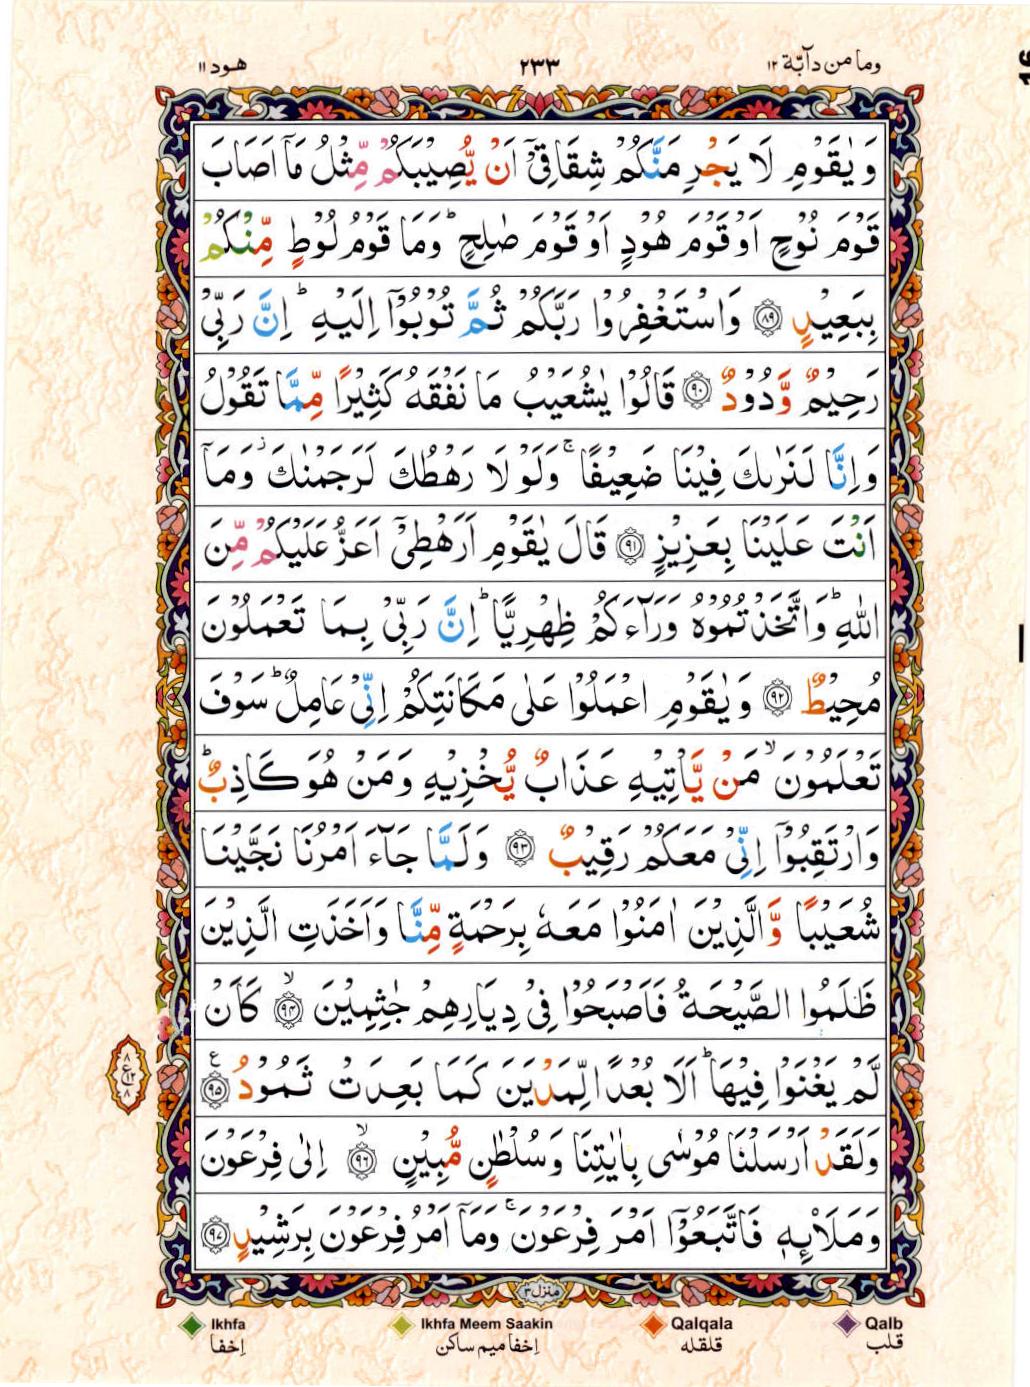 وما من دآبّة ١٢ ٢٣٣ هود ١١
16
وَ يٰقَوْمِ لَا يَجْرِمَنَّكُمْ شِقَاقِيْۤ اَنْ يُّصِيْبَكُمْ مِّثْلُ مَاۤ اَصَابَ
قَوْمَ نُوْحٍ اَوْ قَوْمَ هُوْدٍ اَوْ قَوْمَ صٰلِحٍ ؕ وَمَا قَوْمُ لُوْطٍ مِّنْكُمْ
بِبَعِيْدٍ ﴿۸۹﴾ وَاسْتَغْفِرُوْا رَبَّكُمْ ثُمَّ تُوْبُوْۤا اِلَيْهِ ؕ اِنَّ رَبِّيْ
رَحِيْمٌ وَّدُوْدٌ ﴿۹۰﴾ قَالُوْا يٰشُعَيْبُ مَا نَفْقَهُ كَثِيْرًا مِّمَّا تَقُوْلُ
وَاِنَّا لَنَرٰىكَ فِيْنَا ضَعِيْفًا ۚ وَلَوْ لَا رَهْطُكَ لَرَجَمْنٰكَ ؗ وَمَاۤ
اَنْتَ عَلَيْنَا بِعَزِيْزٍ ﴿۹۱﴾ قَالَ يٰقَوْمِ اَرَهْطِيْۤ اَعَزُّ عَلَيْكُمْ مِّنَ
اللّٰهِ ؕ وَاتَّخَذْتُمُوْهُ وَرَآءَكُمْ ظِهْرِيًّا ؕ اِنَّ رَبِّيْ بِمَا تَعْمَلُوْنَ
مُحِيْطٌ ﴿۹۲﴾ وَ يٰقَوْمِ اعْمَلُوْا عَلٰى مَكَانَتِكُمْ اِنِّيْ عَامِلٌ ؕ سَوْفَ
تَعْلَمُوْنَ ۙ مَنْ يَّاْتِيْهِ عَذَابٌ يُّخْزِيْهِ وَمَنْ هُوَ كَاذِبٌ ؕ
وَارْتَقِبُوْۤا اِنِّيْ مَعَكُمْ رَقِيْبٌ ﴿۹۳﴾ وَلَمَّا جَآءَ اَمْرُنَا نَجَّيْنَا
شُعَيْبًا وَّالَّذِيْنَ اٰمَنُوْا مَعَهٗ بِرَحْمَةٍ مِّنَّا وَاَخَذَتِ الَّذِيْنَ
ظَلَمُوا الصَّيْحَةُ فَاَصْبَحُوْا فِيْ دِيَارِهِمْ جٰثِمِيْنَ ﴿۹۴﴾ ۙ كَاَنْ
لَّمْ يَغْنَوْا فِيْهَا ؕ اَلَا بُعْدًا لِّمَدْيَنَ كَمَا بَعِدَتْ ثَمُوْدُ ﴿۹۵﴾ ع
وَلَقَدْ اَرْسَلْنَا مُوْسٰى بِاٰيٰتِنَا وَسُلْطٰنٍ مُّبِيْنٍ ﴿۹۶﴾ ۙ اِلٰى فِرْعَوْنَ
وَمَلَا۟ئِهٖ فَاتَّبَعُوْۤا اَمْرَ فِرْعَوْنَ ۚ وَمَاۤ اَمْرُ فِرْعَوْنَ بِرَشِيْدٍ ﴿۹۷﴾
٨
ع ١٢
٨
منزل ٣
Ikhfa Ikhfa Meem Saakin Qalqala Qalb
اِخفا اِخفا میم ساکن قلقله قلب